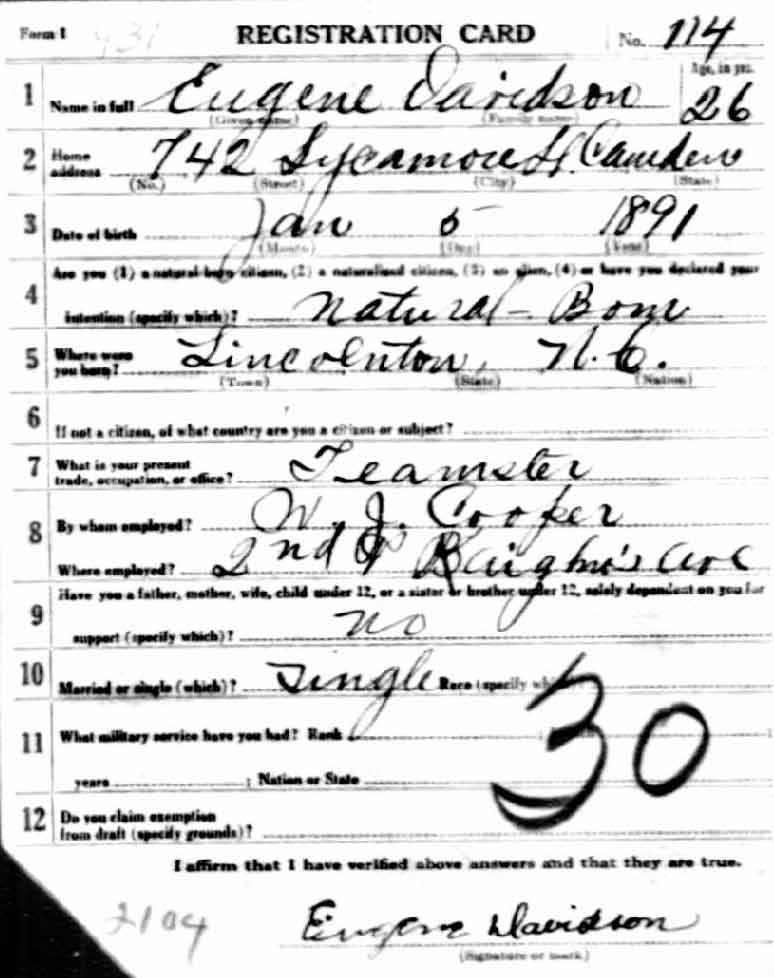 Form 1 931 REGISTRATION CARD No. 114
1 Name in full Eugene Davidson Age, in yrs. 26
(Given name) (Family name)
2 Home address 742 Sycamore St Camden
(No.) (Street) (City) (State)
3 Date of birth Jan 5 1891
(Month) (Day) (Year)
Are you (1) a natural-born citizen, (2) a naturalized citizen, (3) an alien, (4) or have you declared your
4 intention (specify which)? Natural-Born
5 Where were you born? Lincolnton, N.C.
(Town) (State) (Nation)
6 If not a citizen, of what country are you a citizen or subject?
7 What is your present trade, occupation, or office? Teamster
8 By whom employed? W. J. Cooper
Where employed? 2nd &
Have you a father, mother, wife, child under 12, or a sister or brother under 12, solely dependent on you for
9 support (specify which)? no
10 Married or single (which)? Single Race (specify which)
11 What military service have you had? Rank
30
years ; Nation or State
12 Do you claim exemption from draft (specify grounds)?
I affirm that I have verified above answers and that they are true.
2104 Eugene Davidson
(Signature or mark)